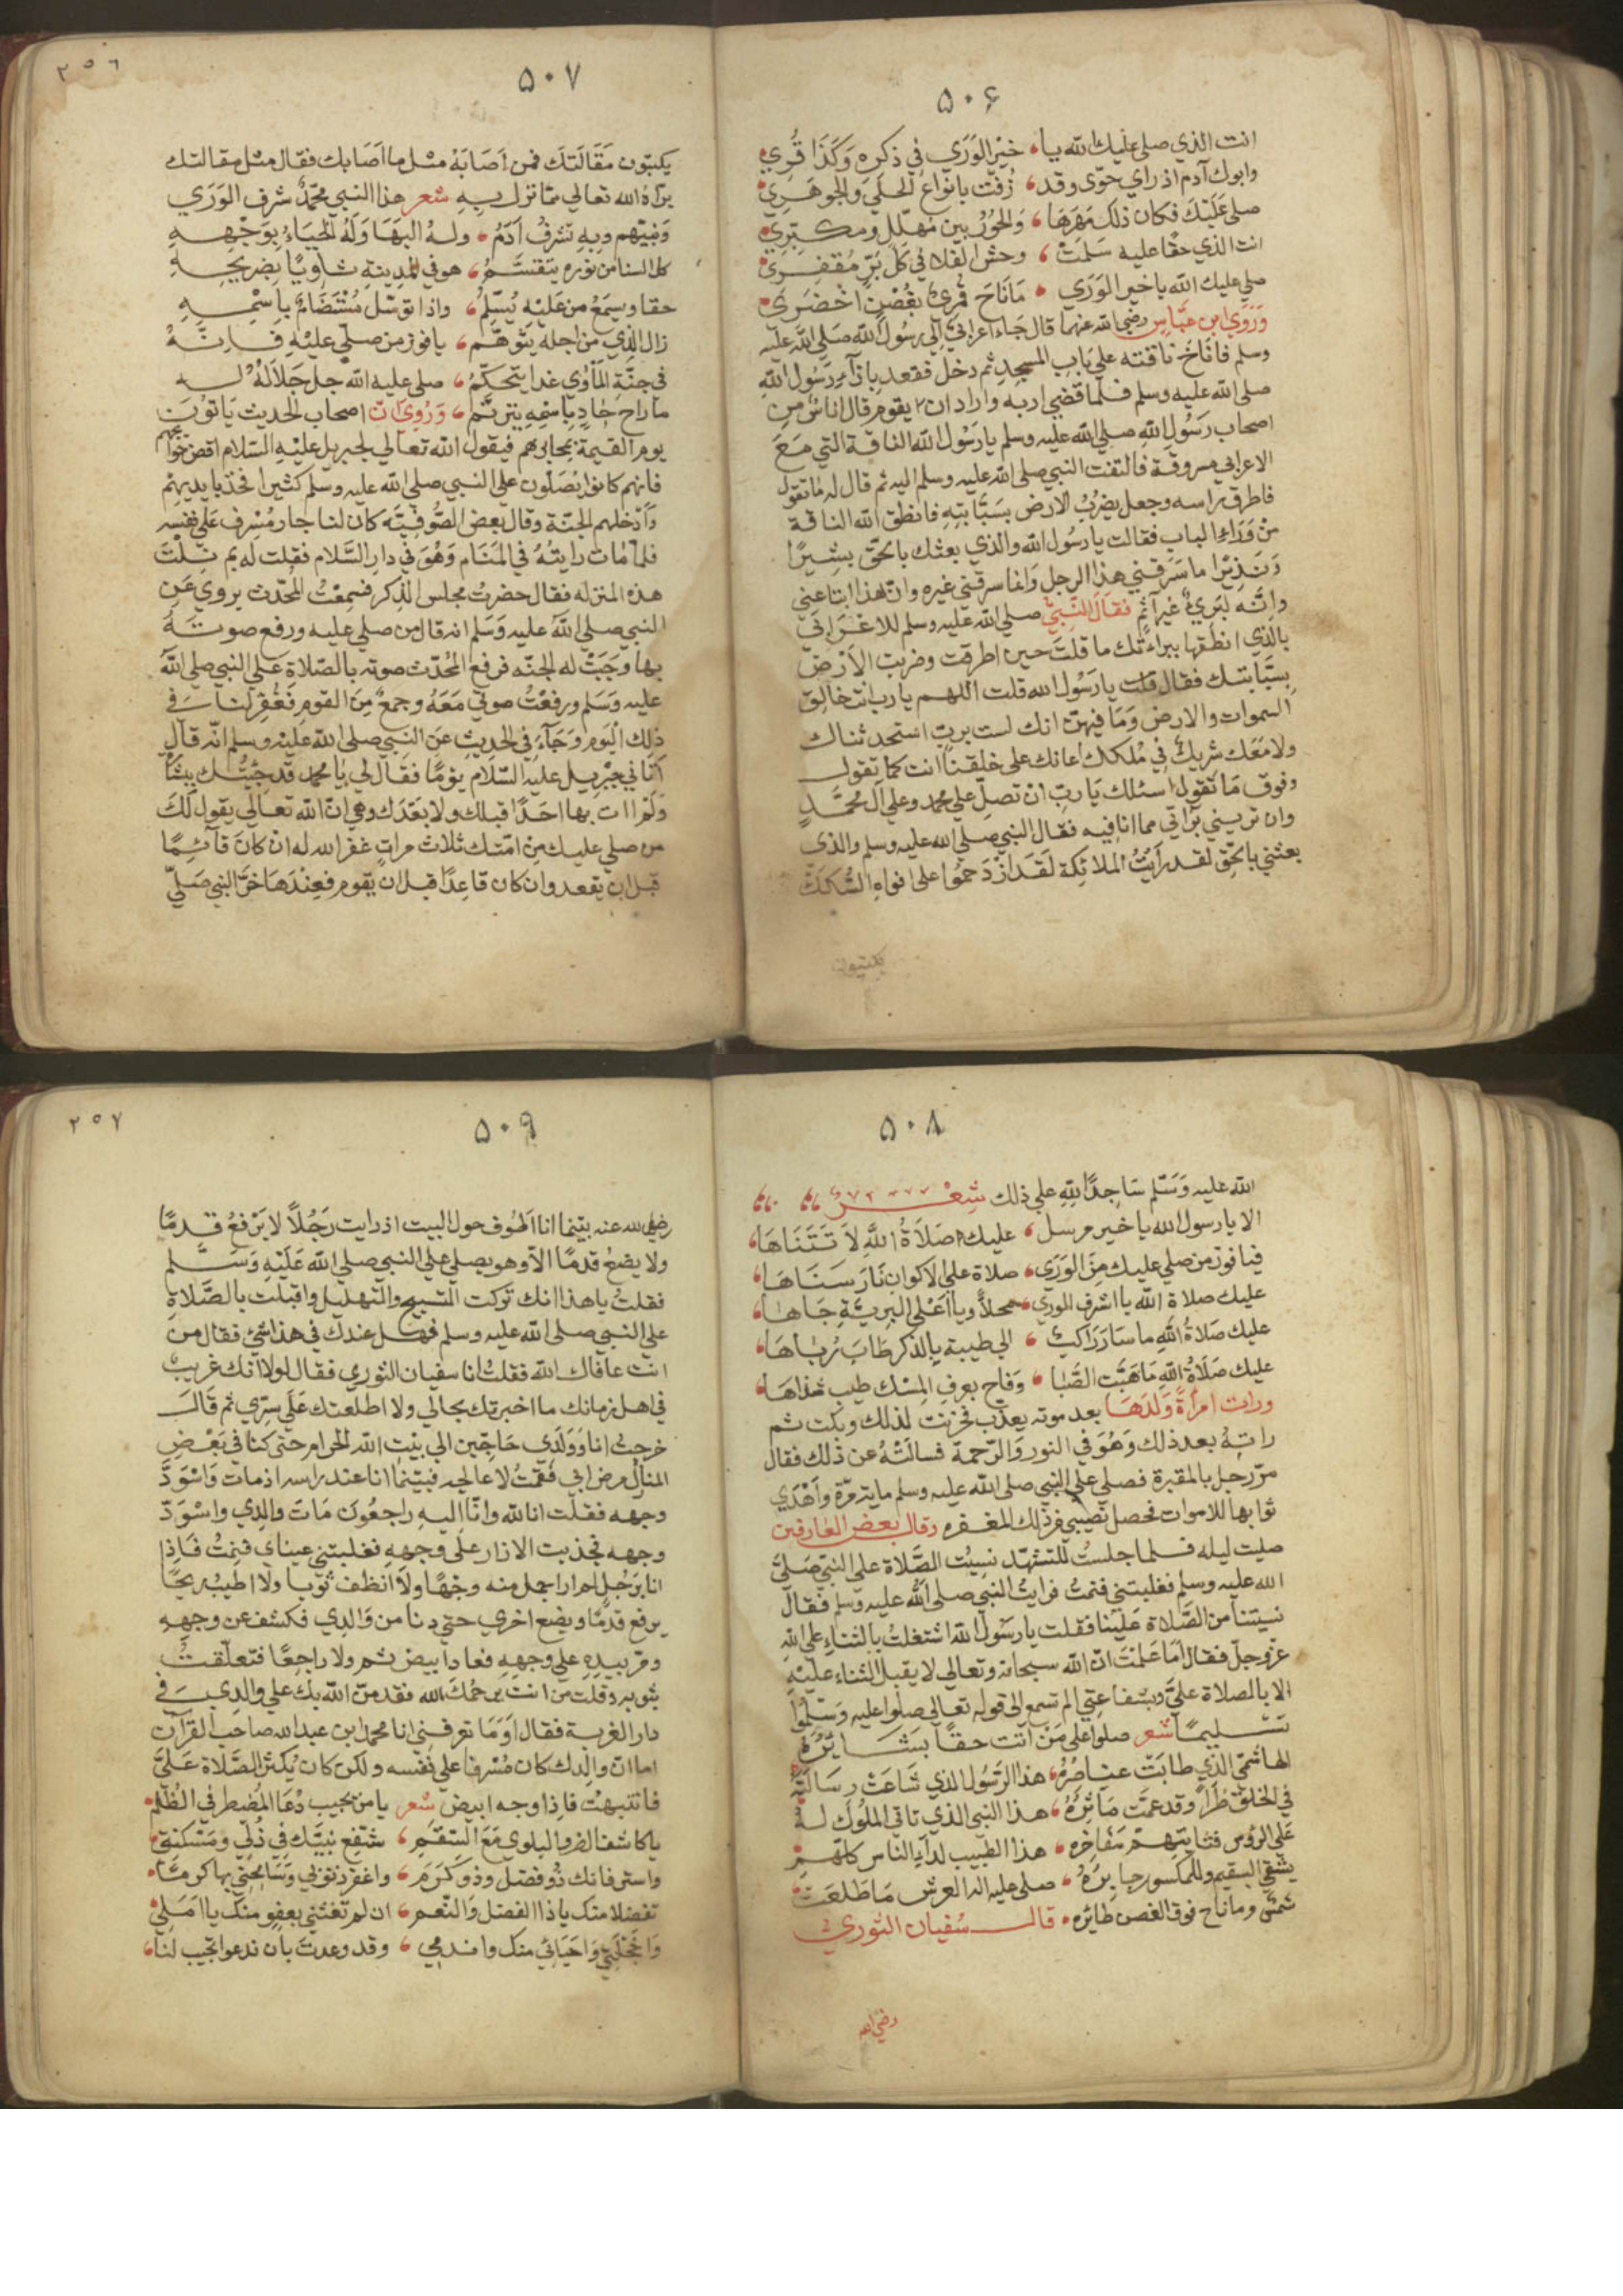 ٥٠۶
انت الذي صلي عليك الله يا، خير الوري في ذكره وكذا قري
وابوك آدم اذ راي حوّي وقد، زفت بانواع الحلي والجوهري
صلي عليك فكان ذلك مهرها، والحور بين مهلل ومكبري
انت الذي حقا عليه سلمت، وحش الفلا في كل بر مقفري
صلي عليك الله يا خير الوري، ما ناح قمري بغصن اخضري
وروي ابن عباس رضي الله عنهما قال جاء اعرابي الي رسول الله صلي الله عليه
وسلم فاناخ ناقته علي باب المسجد ثم دخل فقعد بازآء رسول الله
صلي الله عليه وسلم فلما قضي اربه واراد ان يقوم قال اناس من
اصحاب رسول الله صلي الله عليه وسلم يا رسول الله الناقة التي مع
الاعرابي مسروقة فالتفت النبي صلي الله عليه وسلم اليه ثم قال له ما تقول
فاطرق براسه وجعل يضرب الارض بسبّابته فانطق الله الناقة
من وراء الباب فقالت يا رسول الله والذي بعثك بالحق بشيرا
ونذيرا ما سرقني هذا الرجل وانما سرقني غيره وان هذا ابتاعني
وانه لبريء غير آثم فقال النبي صلي الله عليه وسلم للاعرابي
بالذي انطقها ببراءتك ما قلت حين اطرقت وضربت الارض
بسبّابتك فقال قلت يا رسول الله قلت اللهم يا رب انت خالق
السموات والارض وما فيهن انك لست برب استحدثناك
ولا معك شريك في ملكك اعانك علي خلقنا انت كما تقول
وفوق ما تقول اسئلك يا رب ان تصلي علي محمد وعلي آل محمد
وان تريني برآتي مما انا فيه فقال النبي صلي الله عليه وسلم والذي
بعثني بالحق لقد رايت الملائكة لقد ازدحموا علي افواه السكك
يكتبون
٥٠٧
٢٥٦
يكتبون مقالتك فمن اصابه مثل ما اصابك فقال مثل مقالتك
برّاه الله تعالي مما نزل به شعر هذا النبي محمد شرف الوري
ونبيّهم وبه تشرف آدم، وله البها وله الحياء بوجهه
كل السنا من نوره يتقسم، هو في المدينة ثاويا بضريحه
حقا ويسمع من عليه يسلم، واذا توسل مستضام باسمه
زال الذي من اجله يتوهم، يا فوز من صلي عليه فانه
في جنة المأوي غدا يتحكم، صلي عليه الله جل جلاله
ما راح حاد باسمه يترنم، وروي ان اصحاب الحديث ياتون
يوم القيمة بمحابرهم فيقول الله تعالي لجبريل عليه السلام اقض حوائجهم
فانهم كانوا يصلون علي النبي صلي الله عليه وسلم كثيرا فخذ بايديهم
وادخلهم الجنة وقال بعض الصوفية كان لنا جار مسرف علي نفسه
فلما مات رايته في المنام وهو في دار السلام فقلت له بم نلت
هذه المنزلة فقال حضرت مجلس الذكر فسمعت المحدث يروي عن
النبي صلي الله عليه وسلم انه قال من صلي عليه ورفع صوته
بها وجبت له الجنة فرفع المحدث صوته بالصلاة علي النبي صلي الله
عليه وسلم ورفعت صوتي معه وجمع من القوم فغفر لنا في
ذلك اليوم وجآء في الحديث عن النبي صلي الله عليه وسلم انه قال
اتاني جبريل عليه السلام يوما فقال لي يا محمد قد جئتك ببشارة
ولم اات بها احدا قبلك ولا بعدك وهي ان الله تعالي يقول لك
من صلي عليك من امتك ثلاث مرات غفر الله له ان كان قآئما
قبل ان يقعد وان كان قاعدا قبل ان يقوم فعندها خر النبي صلي
٥٠٨
الله عليه وسلم ساجدا لله علي ذلك شعر
الا يا رسول الله يا خير مرسل، عليك صلاة الله لا تتناها
فيا فوز من صلي عليك من الوري، صلاة علي الاكوان نار سناها
عليك صلاة الله يا اشرف الوري، محلا ويا اعلي البرية جاها
عليك صلاة الله ما سار راكب، الي طيبة بالذكر طاب رباها
عليك صلاة الله ما هبت الصبا، وفاح بعرف المسك طيب شذاها
ورات امراة ولدها بعد موته يعذب فحزنت لذلك وبكت ثم
راته بعد ذلك وهو في النور والرحمة فسالته عن ذلك فقال
مر رجل بالمقبرة فصلي علي النبي صلي الله عليه وسلم ماية مرة واهدي
ثوابها للاموات فحصل نصيبي من ذلك المغفرة وقال بعض العارفين
صليت ليله فلما جلست للتشهد نسيت الصلاة علي النبي صلي
الله عليه وسلم فغلبتني فنمت فرايت النبي صلي الله عليه وسلم فقال
نسيتنا من الصلاة علينا فقلت يا رسول الله اشتغلت بالثناء علي الله
عز وجل فقال اما علمت ان الله سبحانه وتعالي لا يقبل الثناء عليه
الا بالصلاة علي وبشفاعتي الم تسمع الي قوله تعالي صلوا عليه وسلموا
تسليما شعر صلوا علي من اتت حقا بشائره
الهاشمي الذي طابت عناصره، هذا الرسول الذي شاعت رسالته
في الخلق طرا وقد عمت مآثره، هذا النبي الذي تاتي الملوك له
علي الرؤس مفاخره، هذا الطبيب لدآء الناس كلهم
يشفي السقيم وللمكسور جابره، صلي عليه اله العرش ما طلعت
شمس وما ناح فوق الغصن طائره، قال سفيان الثوري
رضي الله
٥٠٩
٢٥٧
رضي الله عنه بينما انا اطوف حول البيت اذ رايت رجلا لا يرفع قدما
ولا يضع قدما الا وهو يصلي علي النبي صلي الله عليه وسلم
فقلت يا هذا انك تركت التسبيح والتهليل واقبلت بالصلاة
علي النبي صلي الله عليه وسلم فهل عندك في هذا شيء فقال من
انت عافاك الله فقلت انا سفيان الثوري فقال لولا انك غريب
في اهل زمانك ما اخبرتك بحالي ولا اطلعتك علي سرّي ثم قال
خرجت انا وولدي حاجين الي بيت الله الحرام حتي كنا في بعض
المنازل مرض ابي فقمت لاعالجه فبينما انا عند راسه اذ مات واسودّ
وجهه فقلت انا لله وانا اليه راجعون مات والدي واسودّ
وجهه فجذبت الازار علي وجهه فغلبتني عيناي فنمت فاذا
انا برجل لم ار اجمل منه وجها ولا انظف ثوبا ولا اطيب ريحا
يرفع قدما ويضع اخري حتي دنا من والدي فكشف عن وجهه
ومر بيده علي وجهه فعاد ابيض ثم ولا راجعا فتعلقت
بثوبه وقلت من انت يرحمك الله فقد منّ الله بك علي والدي في
دار الغربة فقال اوما تعرفني انا محمد ابن عبد الله صاحب القرآن
اما ان والدك كان مسرفا علي نفسه ولكن كان يكثر الصلاة علي
فانتبهت فاذا وجهه ابيض شعر يا من يجيب دعا المضطر في الظلم
يا كاشف الضر والبلوي مع السقم، شفّع نبيّك في ذلي ومسكنتي
واستر فانك ذو فضل وذو كرم، واغفر ذنوبي وسامحني بها كرما
تفضلا منك يا ذا الفضل والنعم، ان لم تغثني بعفو منك يا املي
واخجلتي واحيائي منك واندمي، وقد وعدت بان ندعوا تجيب لنا